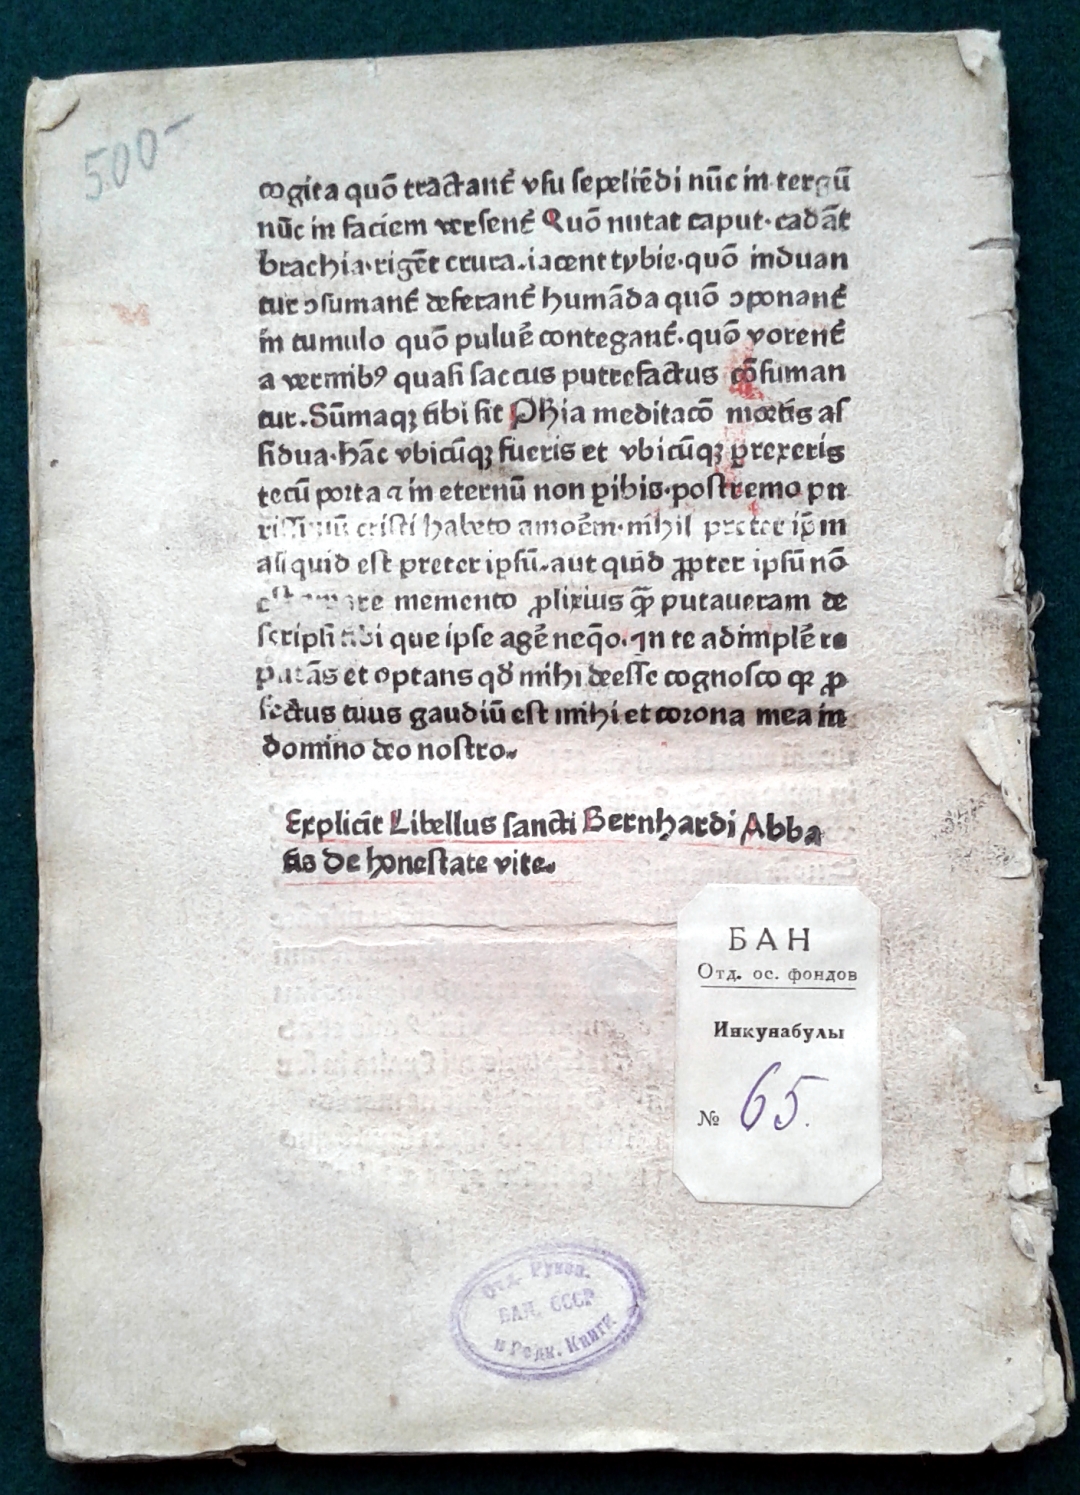 500-
cogita quō tractant᷑ vsu sepeliēdi nūc in tergū
nūc in faciem versent᷑ Quō nutat caput·cadāt
brachia·rigēt crura.iacent tybie·quō induan
tur ↄsumant᷑ deferant᷑ humāda quō ↄponant᷑
in tumulo quō puluē contegant᷑.quō vorent᷑
a vermibꝰ quasi saccus putrefactus cōsuman
tur.Sūmaqꝫ tibi sit Phīa meditacō mortis as
sidua·hāc vbicūqꝫ fueris et vbicūqꝫ ꝑrexeris
tecū porta ⁊ in eternū non ꝑibis·postremo pu
cristi habeto amoēm·nihil preter ip̄m
aliquid est preter ipsū.aut quid ꝓpter ipsū nō
memento ꝓlixius qꝫ̄ putaueram de
scripsi tibi que ipse agē neq̄o.In te adimplē re
putās et optans qd̄ mihi deesse cognosco qꝛ ꝓ
fectus tuus gaudiū est mihi et corona mea in
domino deo nostro.
Explicit Libellus sancti Bernhardi Abba
tis de honestate vite.
БАН
Отд. ос. фондов
Инкунабулы
№ 65.
Отд. Рукоп.
БАН. СССР
и Редк. Книги